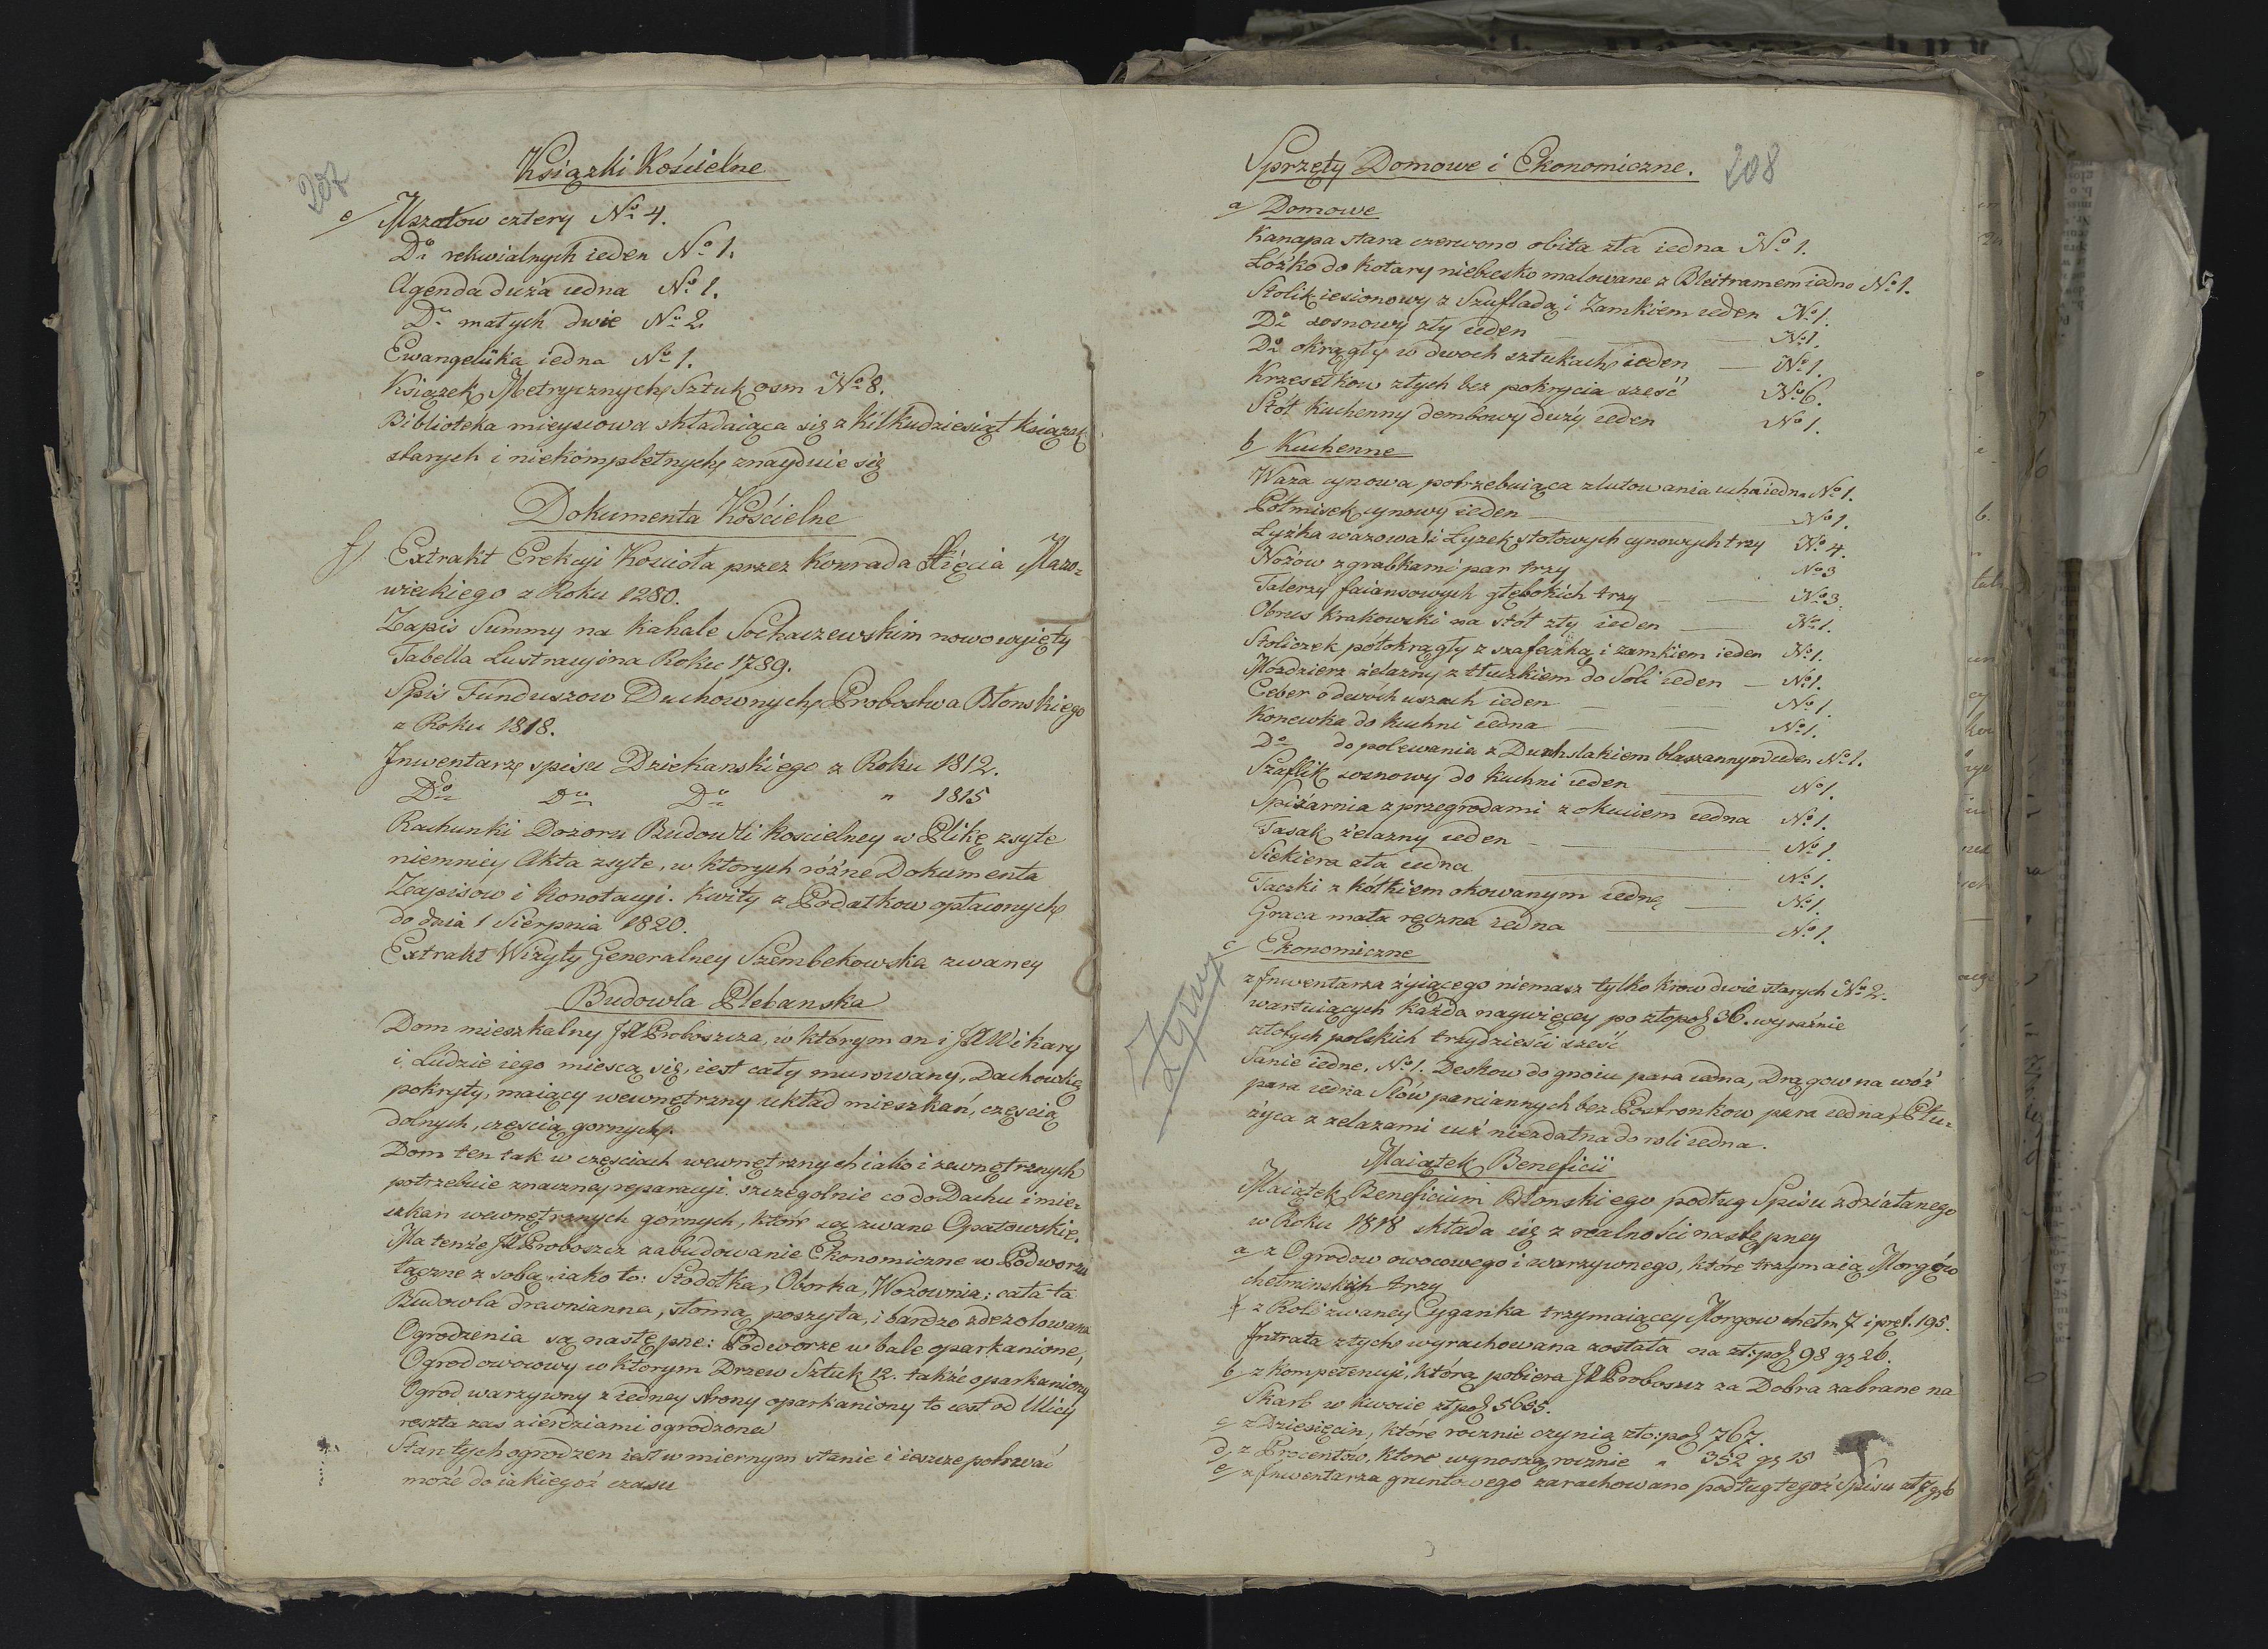 207
Książki Kościelne
e/ Mszałow cztery No 4.
Do rekwialnych ieden No 1.
Agenda duża iedna No 1.
Do małych dwie No 2
Ewangeliika iedna No 1.
Książek Metrycznych Sztuk osm No 8.
Biblioteka mieyscowa składaiąca się z kilkudziesiąt książek
starych i niekompletnych znayduie się
Dokumenta Kościelne
f/ Extrakt Erekcyi Kościoła przez Konrada Xięcia Mazo=
wieckiego z Roku 1280.
Zapis Summy na Kahale Sochaczewskim nowo wyięty
Tabella Lustracyina Roku 1789.
Spis Funduszow Duchownych Probostwa Błonskiego
z Roku 1818.
Inwentarz spisu Dziekanskiego z Roku 1812.
Do Do Do " 1815
Rachunki Dozoru Budowli Kościelney w Plikę zszyte
niemniey Akta zszyte, w ktorych różne Dokumenta
Zapisow i Konotacyi. Kwity z Podatkow opłaconych
do dnia 1 Sierpnia 1820.
Extrakt Wizyty Generalney Szembekowska zwaney
Budowla Plebanska
Dom mieszkalny JX Proboszcza, w którym on i JX Wikary
i Ludzie iego miesczą się, iest cały murowany, Dachowką
pokryty, maiący wewnętrzny układ mieszkań, częścią
dolnych, częścią gornych.
Dom ten tak w częściach wewnętrznych iako i zewnętrznych
potrzebuie znaczney reparacyi. szczegolnie co do Dachu i mie=
szkan wewnętrznych górnych, które są zwane Opatowskie.
Ma tenże JX Proboszcz zabudowanie Ekonomiczne w Podworzu
łączne z sobą iako to: Stodołka, Oborka, Wozownia; cała ta
Budowla drewnianna, słomą poszyta, i bardzo zdezolowana
Ogrodzenia są następne: Podworze w bale oparkanione,
Ogrod owocowy w ktorym Drzew Sztuk 12. także oparkaniony
Ogrod warzywny z iedney strony oparkaniony to iest od Ulicy
reszta zas zierdziami ogrodzona
Stan tych ogrodzen iest w miernym stanie i ieszcze potrwać
może do iakiegoż czasu
208
Sprzęty Domowe i Ekonomiczne.
a/ Domowe
Kanapa stara czerwono obita zła iedna No 1.
Łóżko do Kotary niebiesko malowane z Bleitramem iedno No 1.
Stolik iesionowy z Szufladą i Zamkiem ieden No 1.
Do sosnowy zły ieden No 1.
Do okrągły w dwoch sztukach ieden No 1.
Krzesełkow złych bez pokrycia sześć No 6.
Stół Kuchenny dembowy duży ieden No 1.
b/ Kuchenne
Waza cynowa potrzebuiąca zlutowania ucha iedna No 1.
Półmisek cynowy ieden No 1.
Łyżka wazowa 1 i Łyżek stołowych cynowych trzy No 4.
Nożów z grabkami par trzy No 3
Talerzy faiansowych głębokich trzy No 3.
Obrus Krakowski na stół zły ieden No 1.
Stoliczek półokrągły z szafeczką i zamkiem ieden No 1.
Mozdzierz żelazny z tłuczkiem do Soli ieden No 1.
Ceber o dwóch uszach ieden No 1.
Konewka do kuchni iedna No 1.
Do do polewania z Durchslakiem blaszannym ieden No 1.
Szaflik sosnowy do kuchni ieden No 1.
Spiżarnia z przegrodami z okuciem iedna No 1.
Tasak żelazny ieden No 1.
Siekiera zła iedna No 1.
Taczki z kółkiem okowanym iedne No 1.
Graca mała ręczna iedna No 1.
c/ Ekonomiczne
z Inwentarza żyiącego niemasz tylko krow dwie starych No 2.
wartuiących każda naywięcey po złopol 36. wyraźnie
złotych polskich trzydzieści sześć
Sanie iedne, No 1. Deskow do gnoiu para iedna, Drągow na wóż
para iedna Słów parciannych bez Postronkow para iedna, Płu=
życa z zelazami iuż niezdatna do roli iedna.
Maiątek Beneficii
Maiątek Beneficium Błonskiego podług Spisu zdziałanego
w Roku 1818 składa się z realności następney
a z Ogrodow owocowego i warzywnego, które trzymaią Morgów
chełminskich trzy
z Roli zwaney Cyganka trzymaiącey Morgow chełm 7 i pręt. 195.
Intrata z tych wyrachowana została na zł:pol 98 gr 26.
b/ z Kompetencyi, którą pobiera JX Proboszcz za Dobra zabrane na
Skarb w kwocie zł pol 5655.
c/ z Dziesięcin, które rocznie czynią zło:pol 767.
d/ z Procentów, ktore wynoszą rocznie " 352 gr 15
e/ z Inwentarza gruntowego zarachowano podług tegoż Spisu zł 7 gr 6